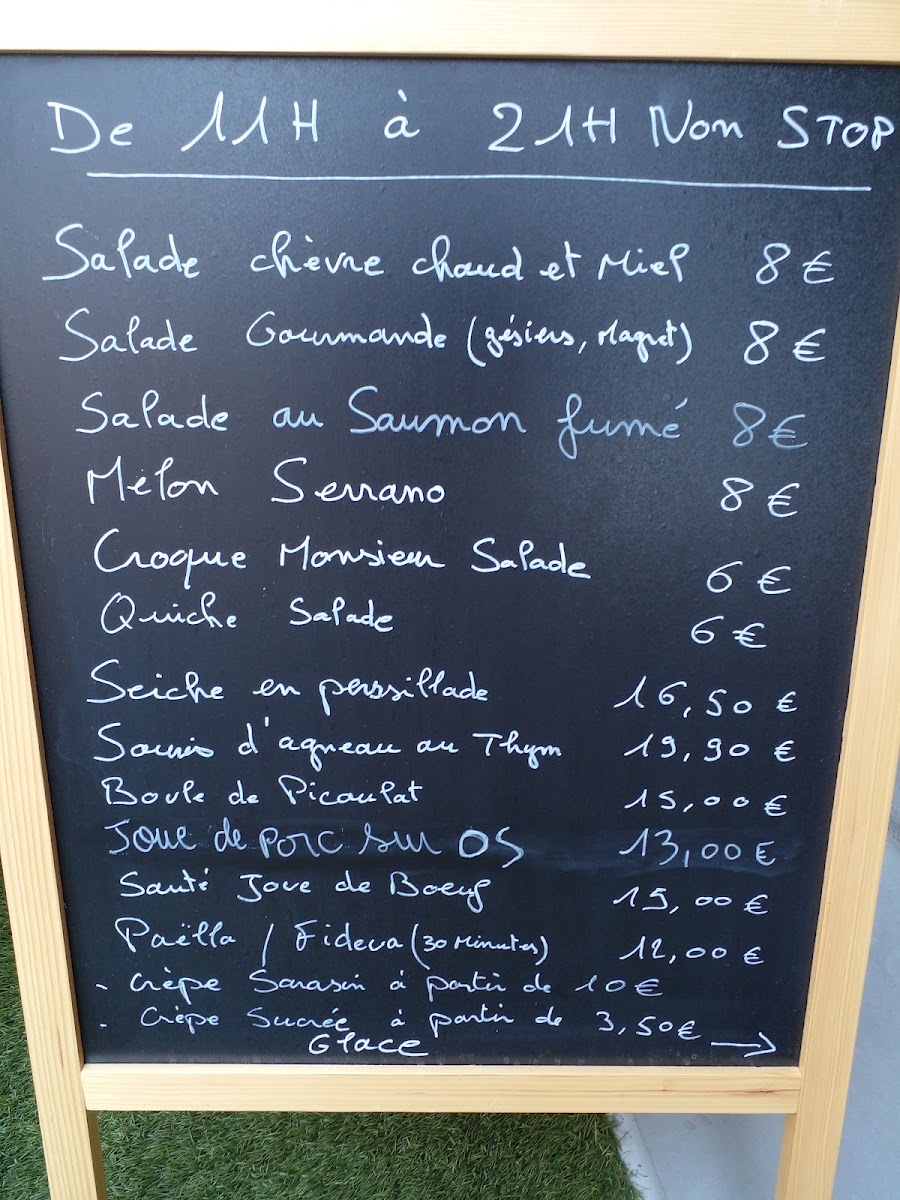 De 11H à 21H Non STOP
Salade chèvre chaud et Miel 8€
Salade Gourmande (gésiers, Magret) 8€
Salade au Saumon fumé 8€
Mélon Serrano 8€
Croque Monsieur Salade 6€
Quiche Salade 6€
Seiche en perssillade 16,50 €
Souris d'agneau au Thym 19,90 €
Boule de Picoulat 15,00 €
Joue de porc sur OS 13,00 €
Sauté Joue de Boeuf 15,00 €
Paëlla / Fideua (30 Minutes) 12,00 €
- Crèpe Sarasin à partir de 10€
- Crèpe Sucrée à partir de 3,50€
Glace →